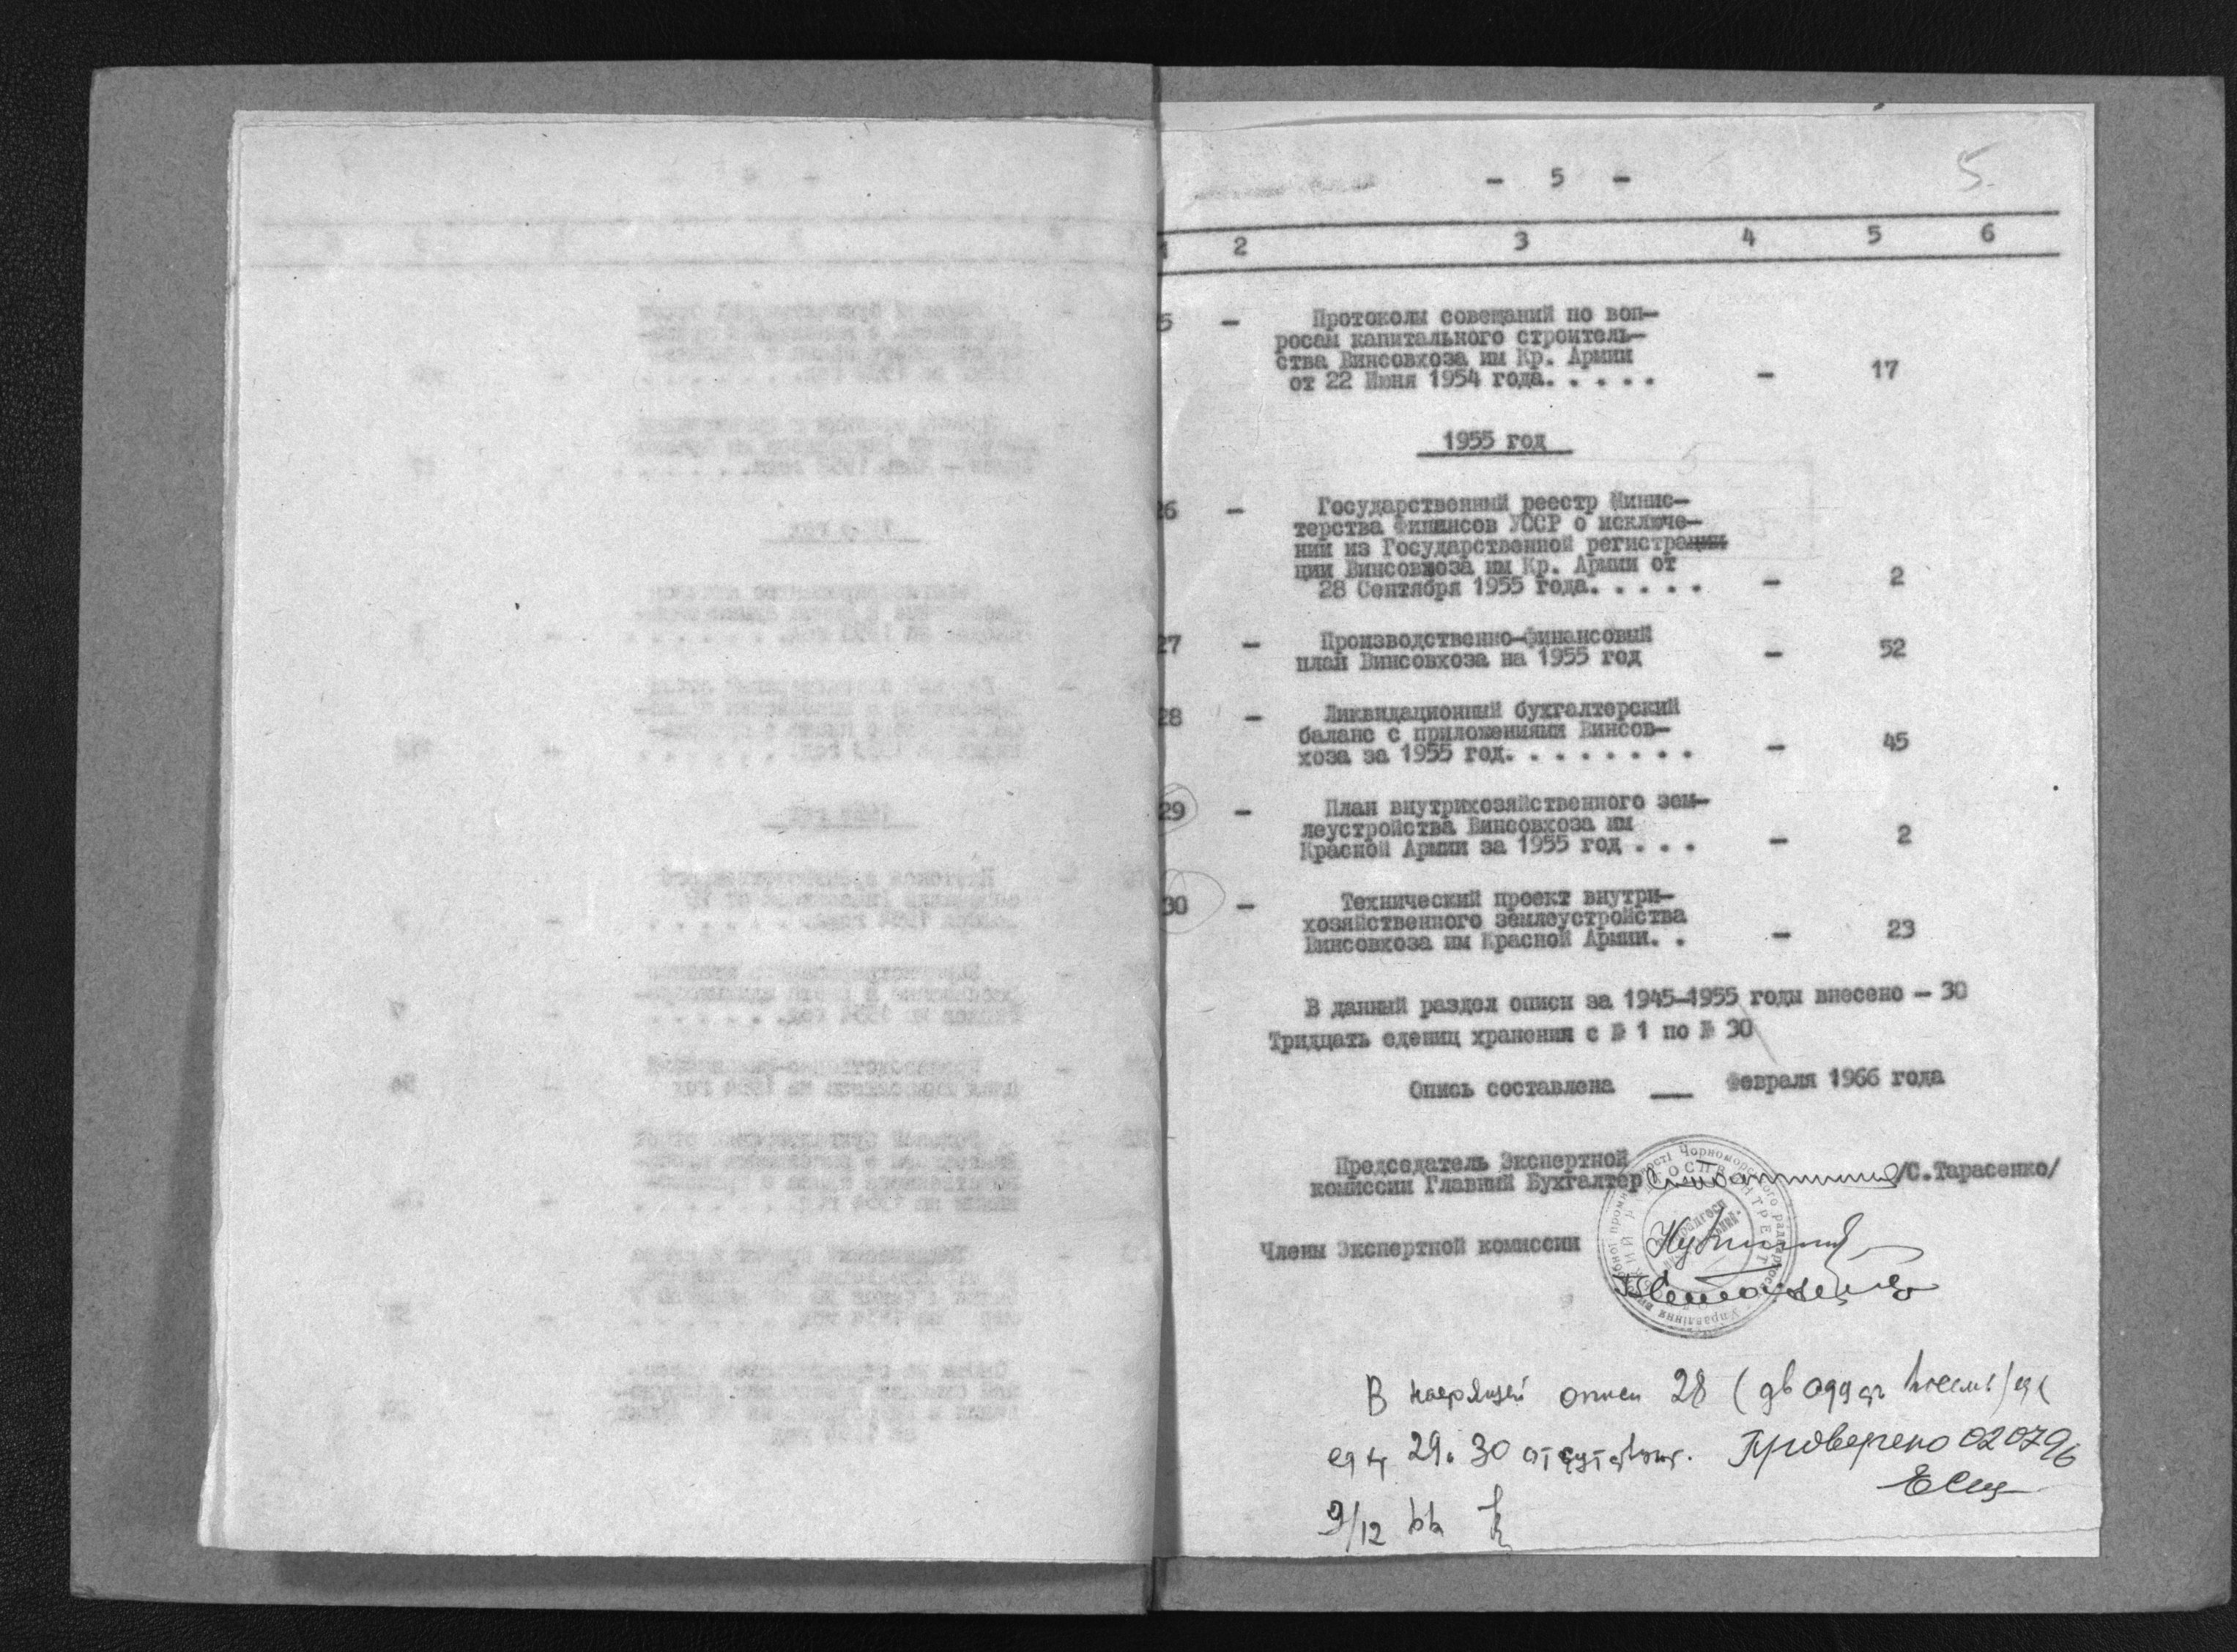 - 5 -
5.
1 2 3 4 5 6
5 - Протоколы совещаний по воп-
росам капитального строитель-
ства Винсовхоза им Кр. Армии
от 22 Июня 1954 года. . . . . - 17
1955 год
26 - Государственный реестр Минис-
терства Финансов УССР о исключе-
нии из Государственной регистрации
ции Винсовхоза им Кр. Армии от
28 Сентября 1955 года. . . . . - 2
27 - Производственно-финансовый
план Винсовхоза на 1955 год - 52
28 - Ликвидационный бухгалтерский
баланс с приложениями Винсов-
хоза за 1955 год. . . . . . . . - 45
29 - План внутрихозяйственного зем-
леустройства Винсовхоза им
Красной Армии за 1955 год . . . - 2
30 - Технический проект внутри-
хозяйственного землеустройства
Винсовхоза им Красной Армии. . - 23
В данный раздел описи за 1945-1955 годы внесено - 30
Тридцать едениц хранения с № 1 по № 30
Опись составлена __ Февраля 1966 года
Председатель Экспертной
комиссии Главний Бухгалтер /С.Тарасенко/
Члены Экспертной комиссии
В описи 28 (
29, 30 Проверено 020796
9/12